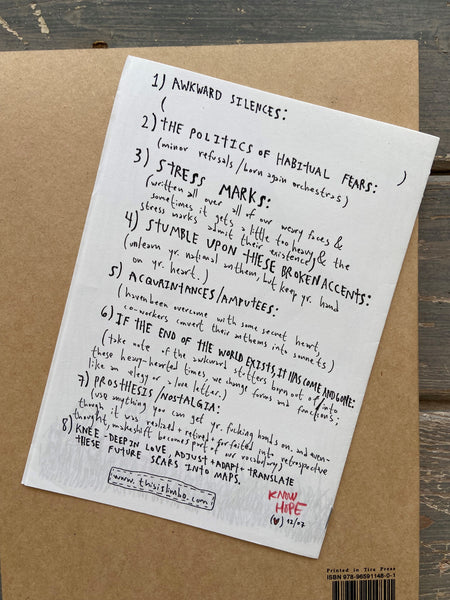 1) AWKWARD SILENCES:
( )
2) THE POLITICS OF HABITUAL FEARS:
(minor refusals/born again orchestras)
3) STRESS MARKS:
(written all over all of our weary faces &
sometimes it gets a little too heavy & the
stress marks admit their existence)
4) STUMBLE UPON THESE BROKEN ACCENTS:
(unlearn yr. national anthem, but keep yr. hand
on yr. heart.)
5) ACQUAINTANCES/AMPUTEES:
(having been overcome with some secret heart,
co-workers convert their anthems into sonnets)
6) IF THE END OF THE WORLD EXISTS, IT HAS COME AND GONE:
(take note of the awkward stutters born out of/into
these heavy-hearted times, we change forms and functions;
like an elegy or a love letter.)
7) PROSTHESIS/NOSTALGIA:
(use anything you can get yr. fucking hands on. and even-
though it was realized + retired + forfeited into retrospective
thought, makeshift becomes part of our vocabulary)
8) KNEE-DEEP IN LOVE, ADJUST + ADAPT + TRANSLATE
THESE FUTURE SCARS INTO MAPS.
www.thisislimbo.com
KNOW
HOPE
(♥) 12/07
Printed in Tire Press
ISBN 978-96591148-0-1